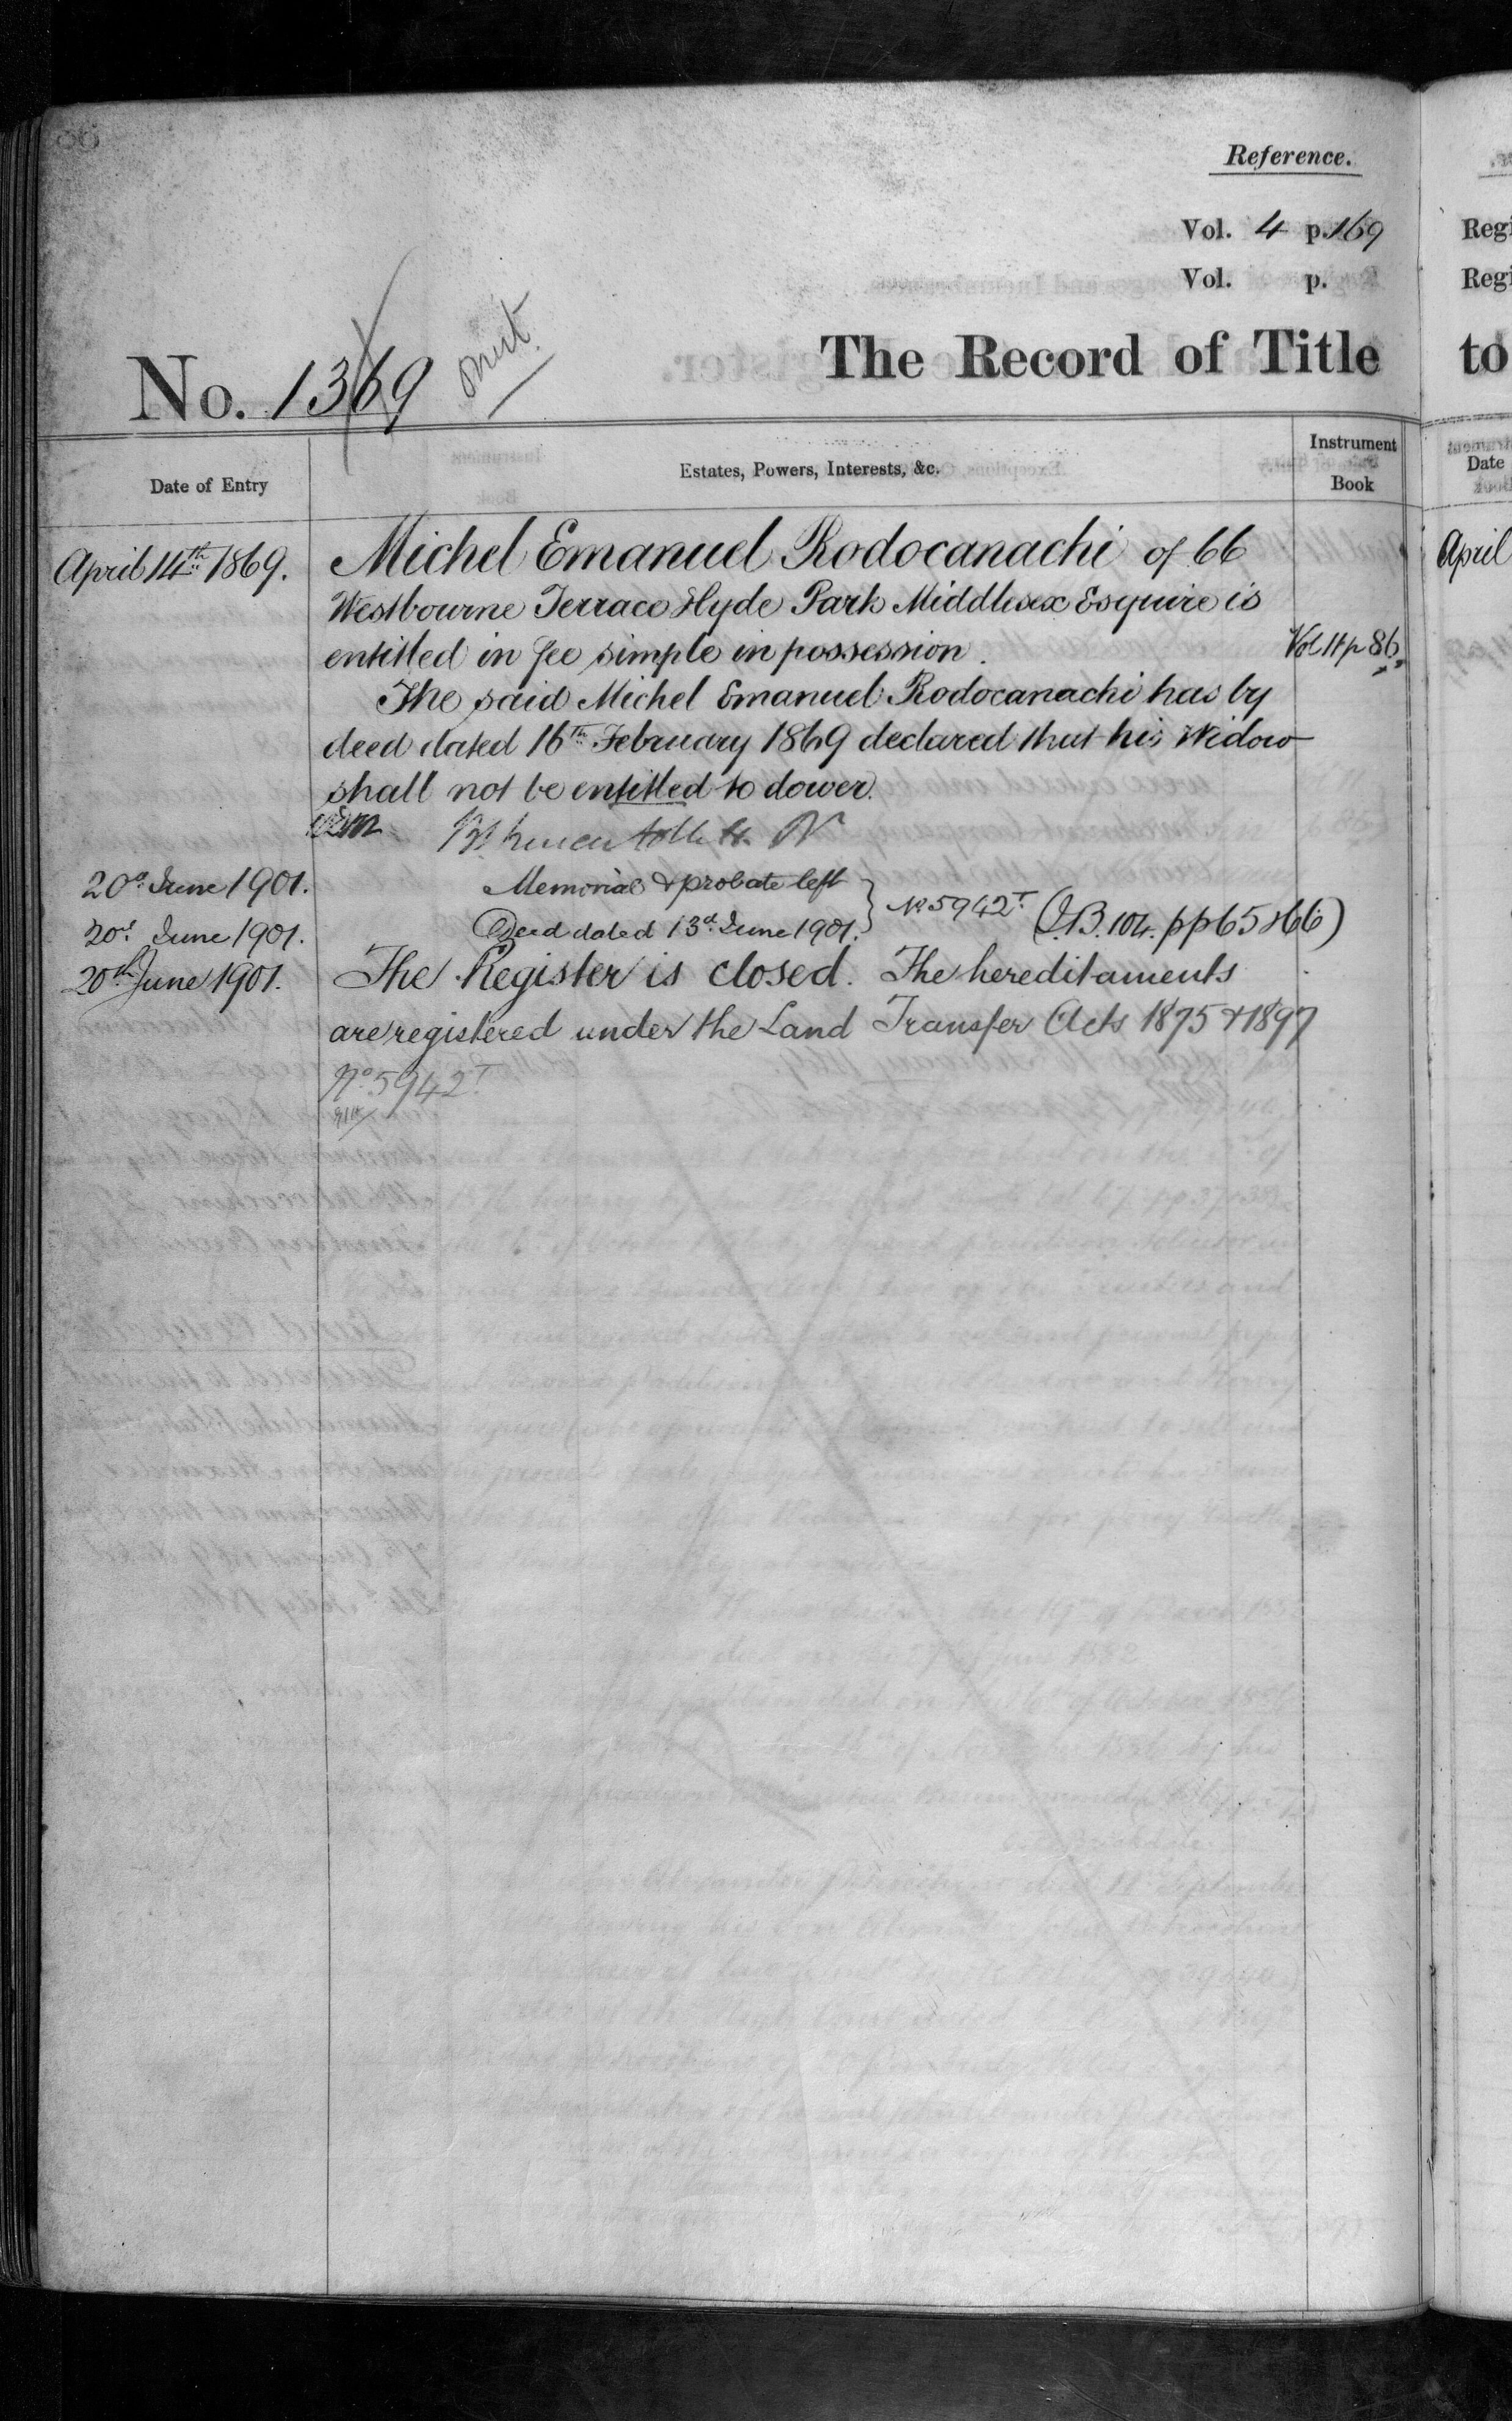 Reference.
Vol. 4 p. 169
Vol. p.
No. 1369
omit.
The Record of Title
Date of Entry
Estates, Powers, Interests, &c.
Instrument
Book
April 14th 1869.
Michel Emanuel Rodocanachi of 66
Westbourne Terrace Hyde Park Middlesex Esquire is
entitled in fee simple in possession.
Vol 11 p 86
The said Michel Emanuel Rodocanachi has by
deed dated 16th February 1869 declared that his Widow
shall not be entitled to dower.
20th June 1901. Memorial & probate left
20th June 1901. Deed dated 13d. June 1901. } No 5942T (I.B. 104. pp 65 & 66)
20th June 1901. The Register is closed. The hereditaments
are registered under the Land Transfer Acts 1875 & 1897
No 5942T
Regi
Regi
to
Date
April